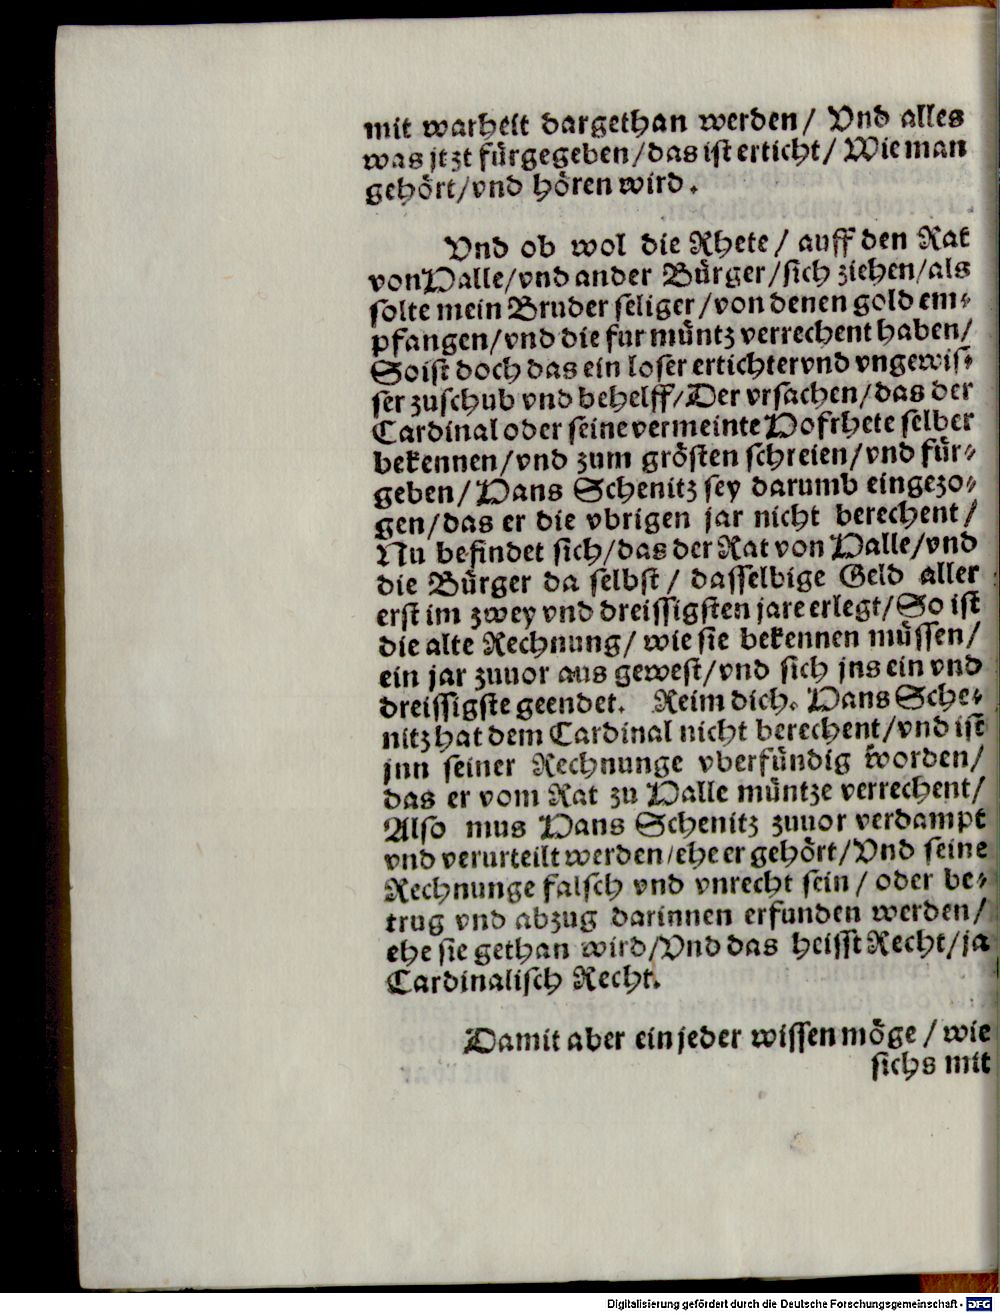 mit warheit dargethan werden/ Vnd alles
was jtzt fürgegeben/das ist erticht/ Wie man
gehört/vnd hören wird.
Vnd ob wol die Rhete/ auff den Rat
von Halle/vnd ander Bürger/sich ziehen/als
solte mein Bruder seliger/von denen gold em⸗
pfangen/vnd die fur müntz verrechent haben/
So ist doch das ein loser ertichter vnd vngewis⸗
ser zuschub vnd behelff/Der vrsachen/das der
Cardinal oder seine vermeinte Hofrhete selber
bekennen/vnd zum grösten schreien/vnd für⸗
geben/Hans Schenitz sey darumb eingezo⸗
gen/das er die vbrigen jar nicht berechent/
Nu befindet sich/das der Rat von Halle/vnd
die Bürger da selbst/ dasselbige Geld aller
erst im zwey vnd dreissigsten jare erlegt/So ist
die alte Rechnung/ wie sie bekennen müssen/
ein jar zuuor aus gewest/vnd sich jns ein vnd
dreissigste geendet. Reim dich. Hans Sche⸗
nitz hat dem Cardinal nicht berechent/vnd ist
jnn seiner Rechnunge vberfündig worden/
das er vom Rat zu Halle müntze verrechent/
Also mus Hans Schenitz zuuor verdampt
vnd verurteilt werden/ehe er gehört/Vnd seine
Rechnunge falsch vnd vnrecht sein/ oder be⸗
trug vnd abzug darinnen erfunden werden/
ehe sie gethan wird/Vnd das heisst Recht/ja
Cardinalisch Recht.
Damit aber ein jeder wissen möge/ wie
sichs mit
Digitalisierung gefördert durch die Deutsche Forschungsgemeinschaft - DFG